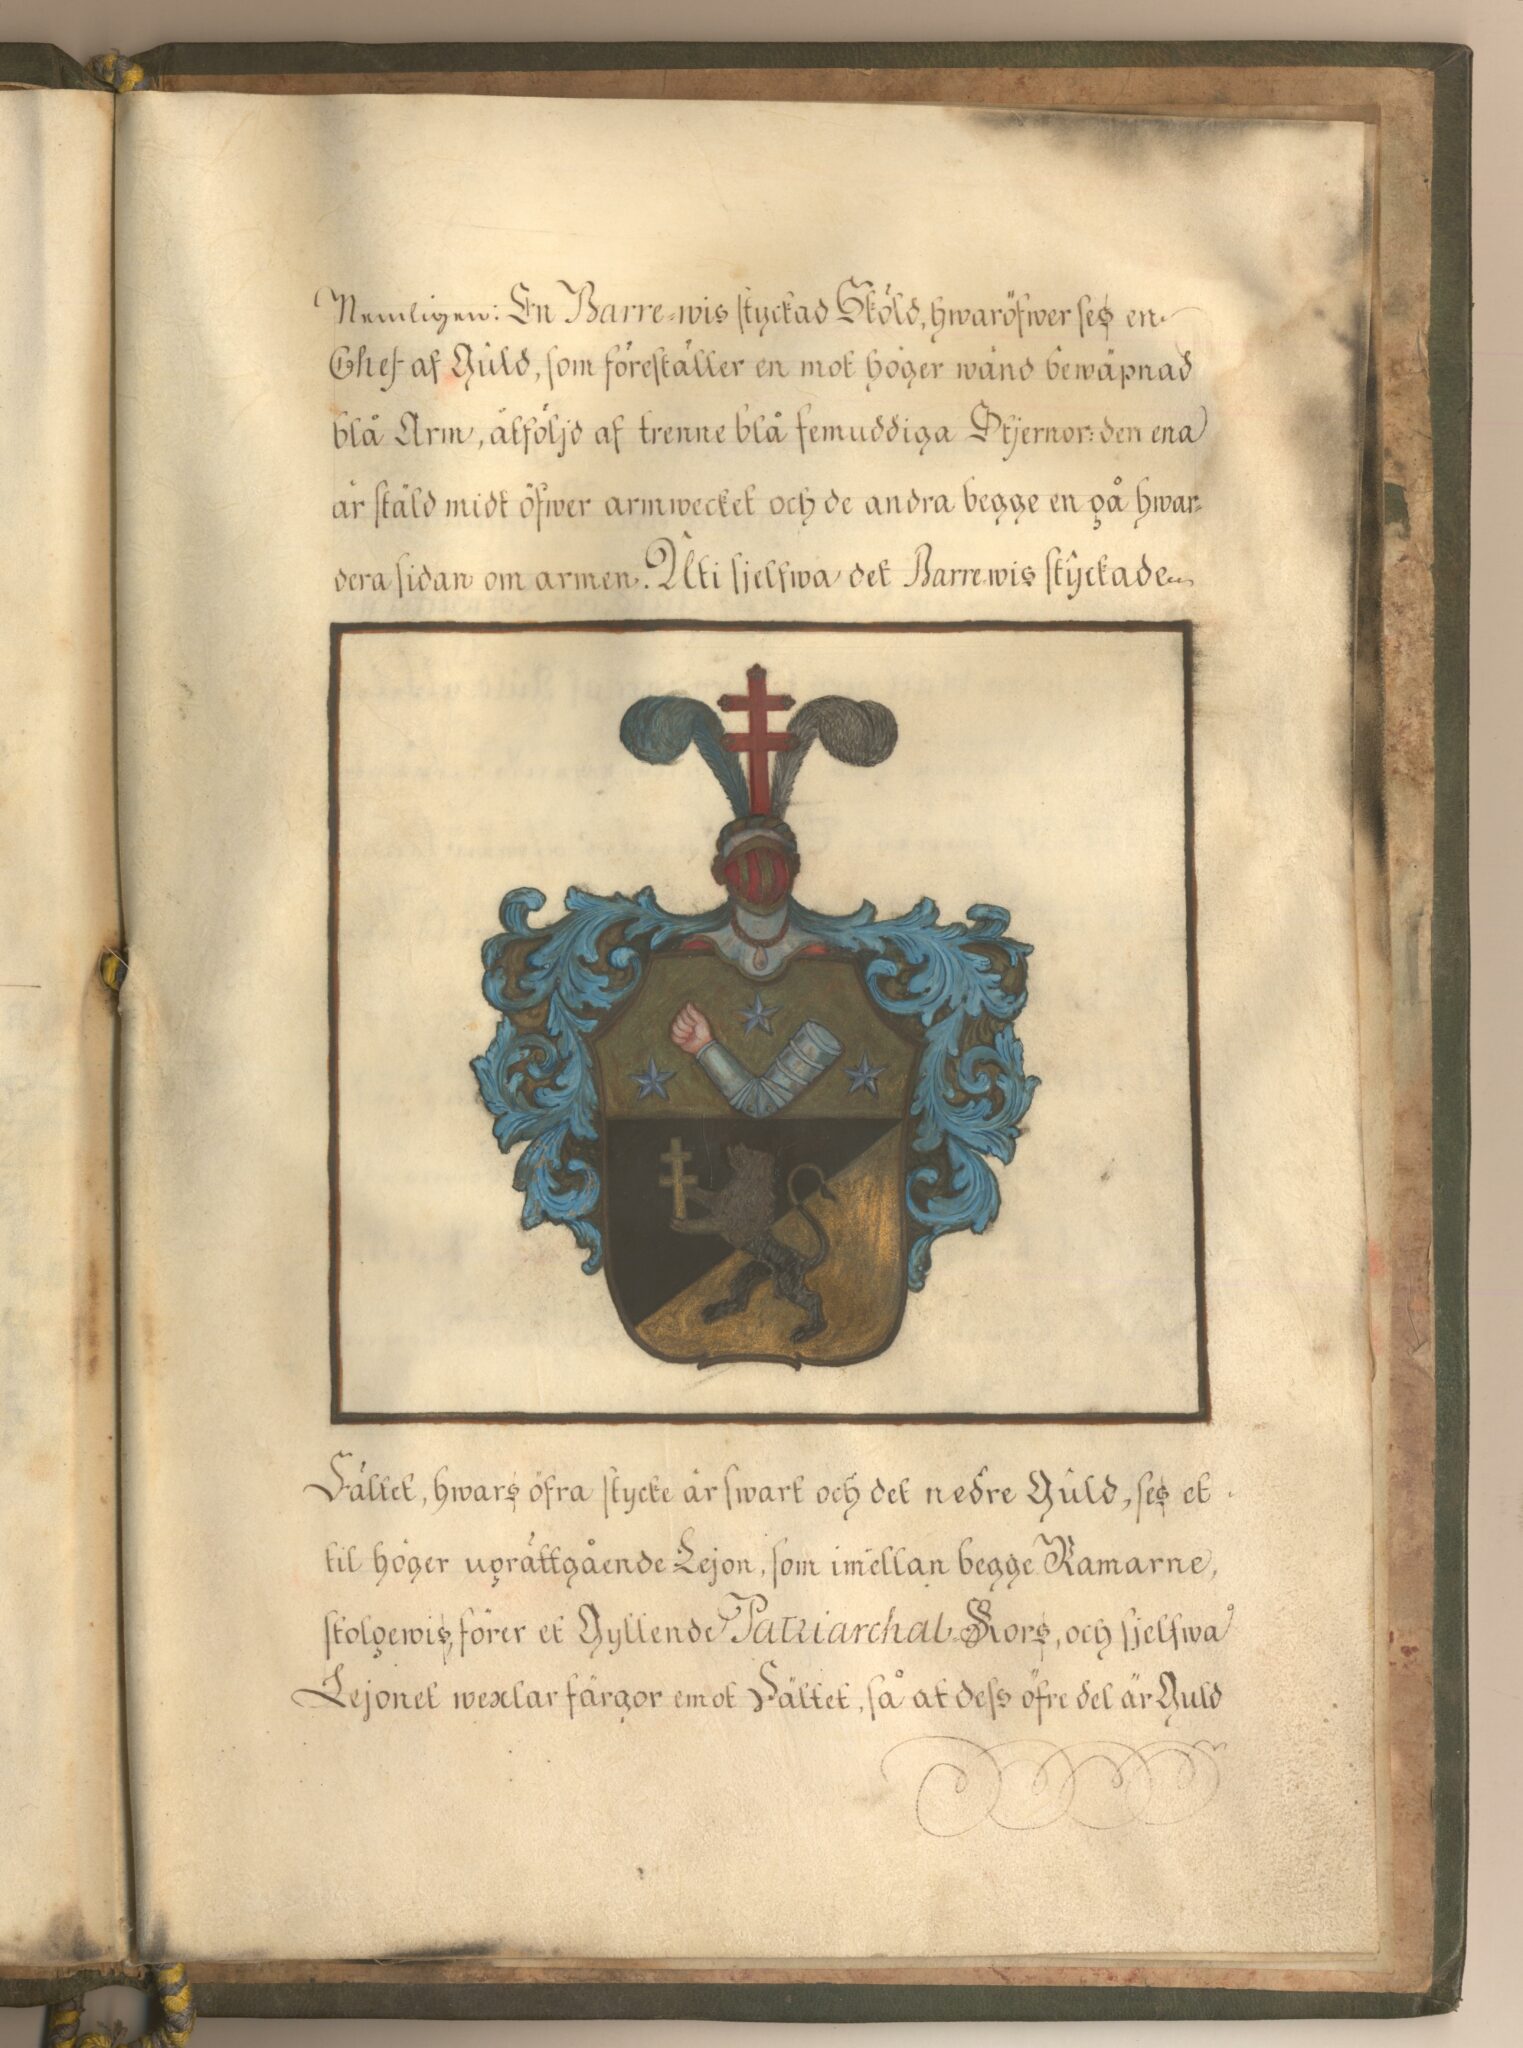 Nemligen: En Barre-wis styckad Sköld, hwaröfwer ses en
Chef af Guld, som föreställer en mot höger wänd bewäpnad
blå Arm, åtföljd af trenne blå femuddiga Stjernor: den ena
är stäld midt öfwer armwecket och de andra begge en på hwar-
dera sidan om armen. Uti sjelfwa det Barre-wis styckade
Fältet, hwars öfra stycke är swart och det nedre Guld, ses et
til höger uprättgående Lejon, som imellan begge Ramarne,
stolpewis, förer et Gyllende Patriarchal-Kors, och sjelfwa
Lejonet wexlar färgor emot Fältet, så at dess öfre del är Guld